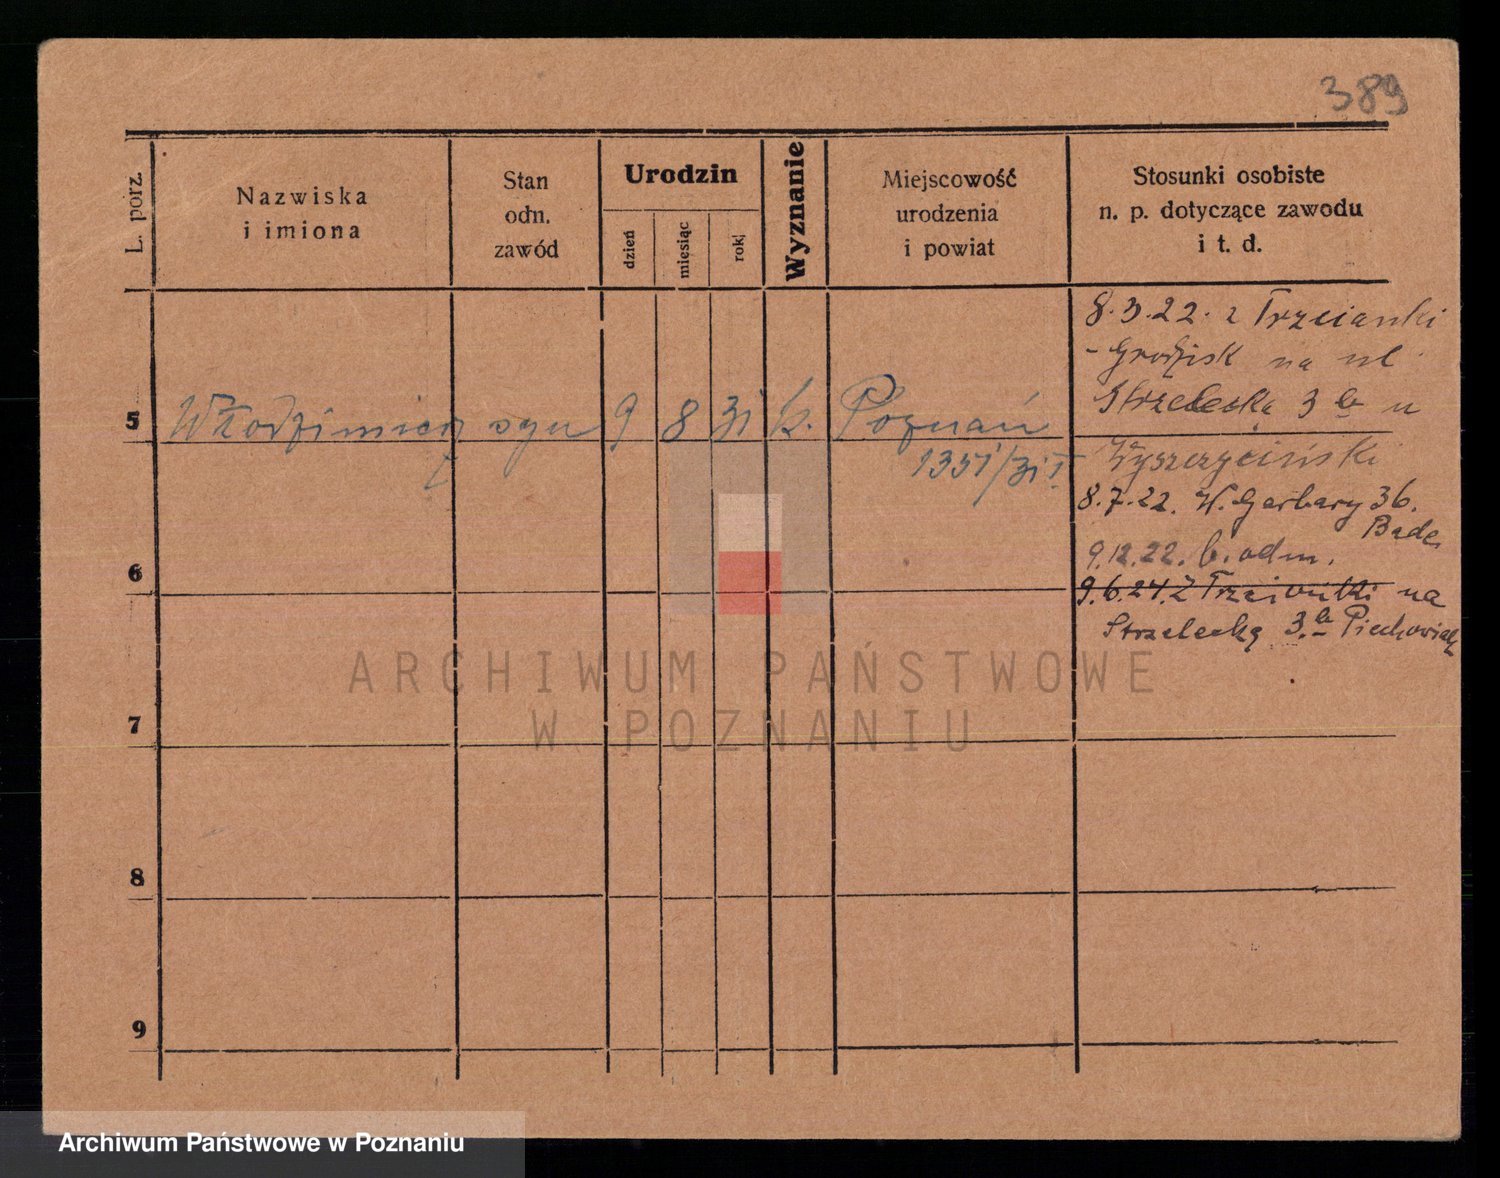 389
L. porz.
Nazwiska
i imiona
Stan
odn.
zawód
Urodzin
dzień
miesiąc
rok
Wyznanie
Miejscowość
urodzenia
i powiat
Stosunki osobiste
n. p. dotyczące zawodu
i t. d.
5 Włodzimierz syn 9 8 31 k. Poznań
1351/31 I
8.3.22. z Trzcianki
- Grodzisk na ul.
Strzelecką 3 a u
Wyszczyciński
8.7.22. W. Garbary 36.
Bade
9.12.22. b. odm.
9.6.24. Z Trzcianki na
Strzelecką 3 a Piechowiak
6
7
8
9
ARCHIWUM PAŃSTWOWE
W POZNANIU
Archiwum Państwowe w Poznaniu